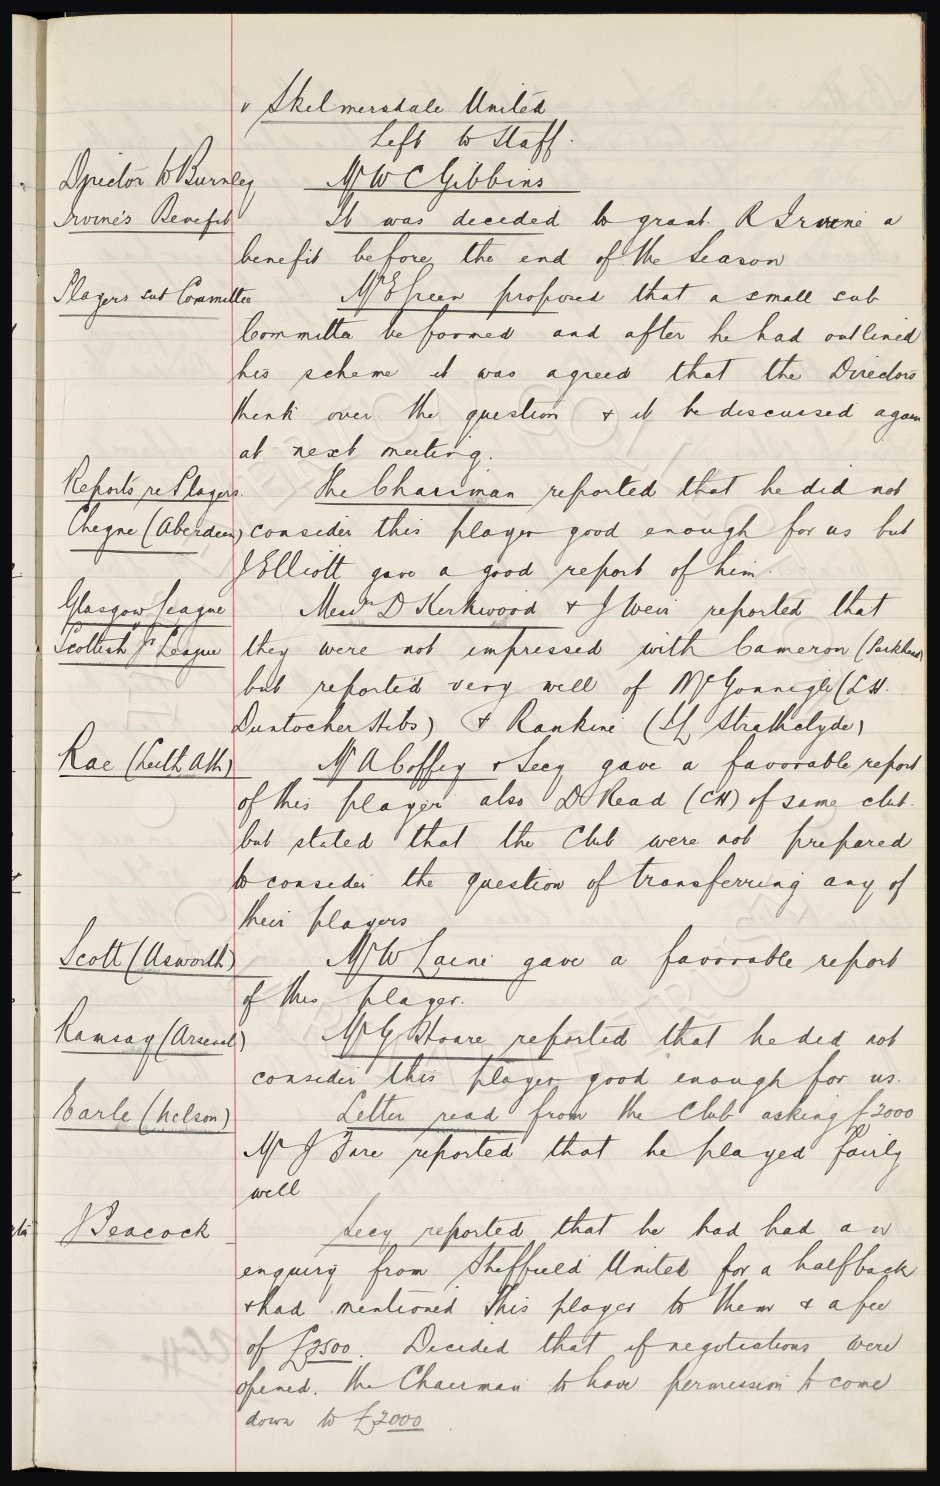 " Skelmersdale United
Left to Staff.
Director to Burnley Mr W C Gibbins
Irvine's Benefit It was decided to grant R Irvine a
benefit before the end of the Season
Players sub Committee Mr E Green proposed that a small sub
Committee be formed and after he had outlined
his scheme it was agreed that the Directors
think over the question & it be discussed again
at next meeting.
Reports re Players. The Chairman reported that he did not
Cheyne (Aberdeen) consider this player good enough for us but
J Elliott gave a good report of him.
Glasgow League Messrs D Kirkwood & J Weir reported that
Scottish Jr League they were not impressed with Cameron (Parkhead)
but reported very well of McGonnigle (L H.
Duntocher Hibs) & Rankine (I L Strathclyde)
Rae (Leith Ath) Mr A Coffey & Secy gave a favorable report
of this player also D Read (CH) of same club.
but stated that the Club were not prepared
to consider the question of transferring any of
their players
Scott (Usworth) Mr W Laine gave a favorable report
of this player.
Ramsay (Arsenal) Mr G Hoare reported that he did not
consider this player good enough for us.
Earle (Nelson) Letter read from the Club asking £2000
Mr J Fare reported that he played fairly
well
J Peacock Secy reported that he had had an
enquiry from Sheffield United for a half back
& had mentioned this player to them & a fee
of £2500. Decided that if negotiations were
opened. the Chairman to have permission to come
down to £2000